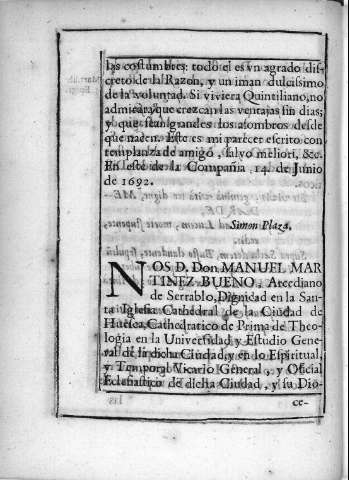 las costumbres: todo el es vn agrado dis-
creto de la Razon, y un iman dulcissimo
de la voluntad. Si viviera Quintiliano, no
admirara que crezcan las ventajas sin dias;
y que sean grandes los asombros desde
que nacen. Este es mi parecer escrito con
templanza de amigo, salvo meliori, &c.
En este de la Compañia, 14. de Junio
de 1692.
Simon Plaza.
NOS D. Don MANUEL MAR
TINEZ BUENO, Arcediano
de Serrablo, Dignidad en la San-
ta Iglesia Cathedral de la Ciudad de
Huesca, Cathedratico de Prima de Theo-
logia en la Universidad y Estudio Gene-
ral de la dicha Ciudad, y en lo Espiritual,
y Temporal Vicario General, y Oficial
Eclesiastico de dicha Ciudad, y su Dio-
ce-